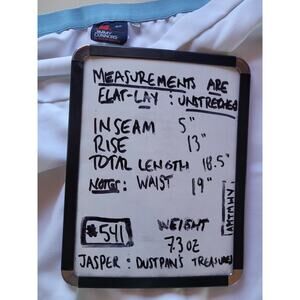 JIMMY
CONNORS
MEASUREMENTS ARE
FLAT-LAY : UNSTRETCHED
INSEAM 5"
RISE 13"
TOTAL LENGTH 18.5"
NOTES: WAIST 19"
#541
WEIGHT
7.3 OZ
JASPER: DUSTPAN'S TREASURES